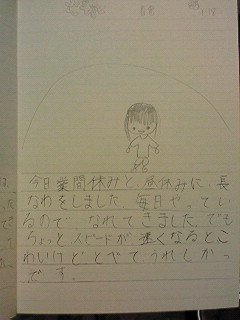 今日業間休みと、昼休みに長
なわをしました。毎日やってい
るので、なれてきました。でも
ちょっとスピードが速くなるとこ
わいけどとべてうれしかっ
です。